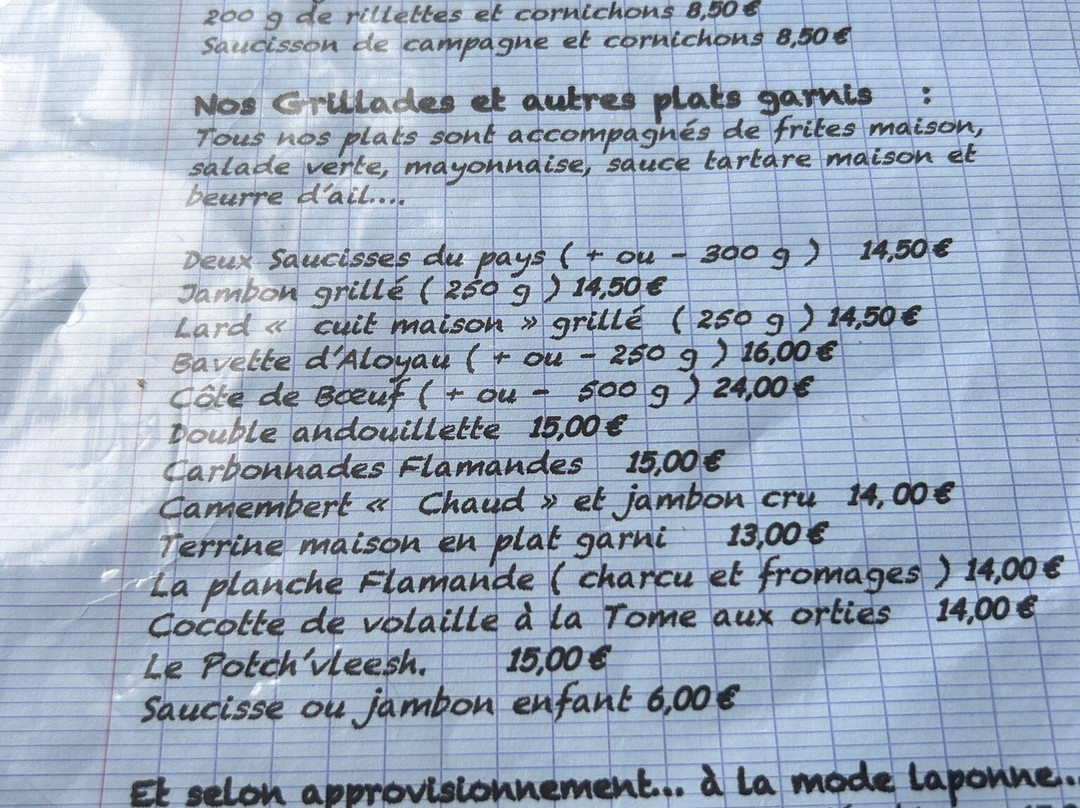 200 g de rillettes et cornichons 8,50 €
Saucisson de campagne et cornichons 8,50 €
Nos Grillades et autres plats garnis :
Tous nos plats sont accompagnés de frites maison,
salade verte, mayonnaise, sauce tartare maison et
beurre d'ail....
Deux Saucisses du pays ( + ou - 300 g ) 14,50 €
Jambon grillé ( 250 g ) 14,50 €
Lard « cuit maison » grillé ( 250 g ) 14,50 €
Bavette d'Aloyau ( + ou - 250 g ) 16,00 €
Côte de Bœuf ( + ou - 500 g ) 24,00 €
Double andouillette 15,00 €
Carbonnades Flamandes 15,00 €
Camembert « Chaud » et jambon cru 14,00 €
Terrine maison en plat garni 13,00 €
La planche Flamande ( charcu et fromages ) 14,00 €
Cocotte de volaille à la Tome aux orties 14,00 €
Le Potch'vleesh. 15,00 €
Saucisse ou jambon enfant 6,00 €
Et selon approvisionnement... à la mode laponne...